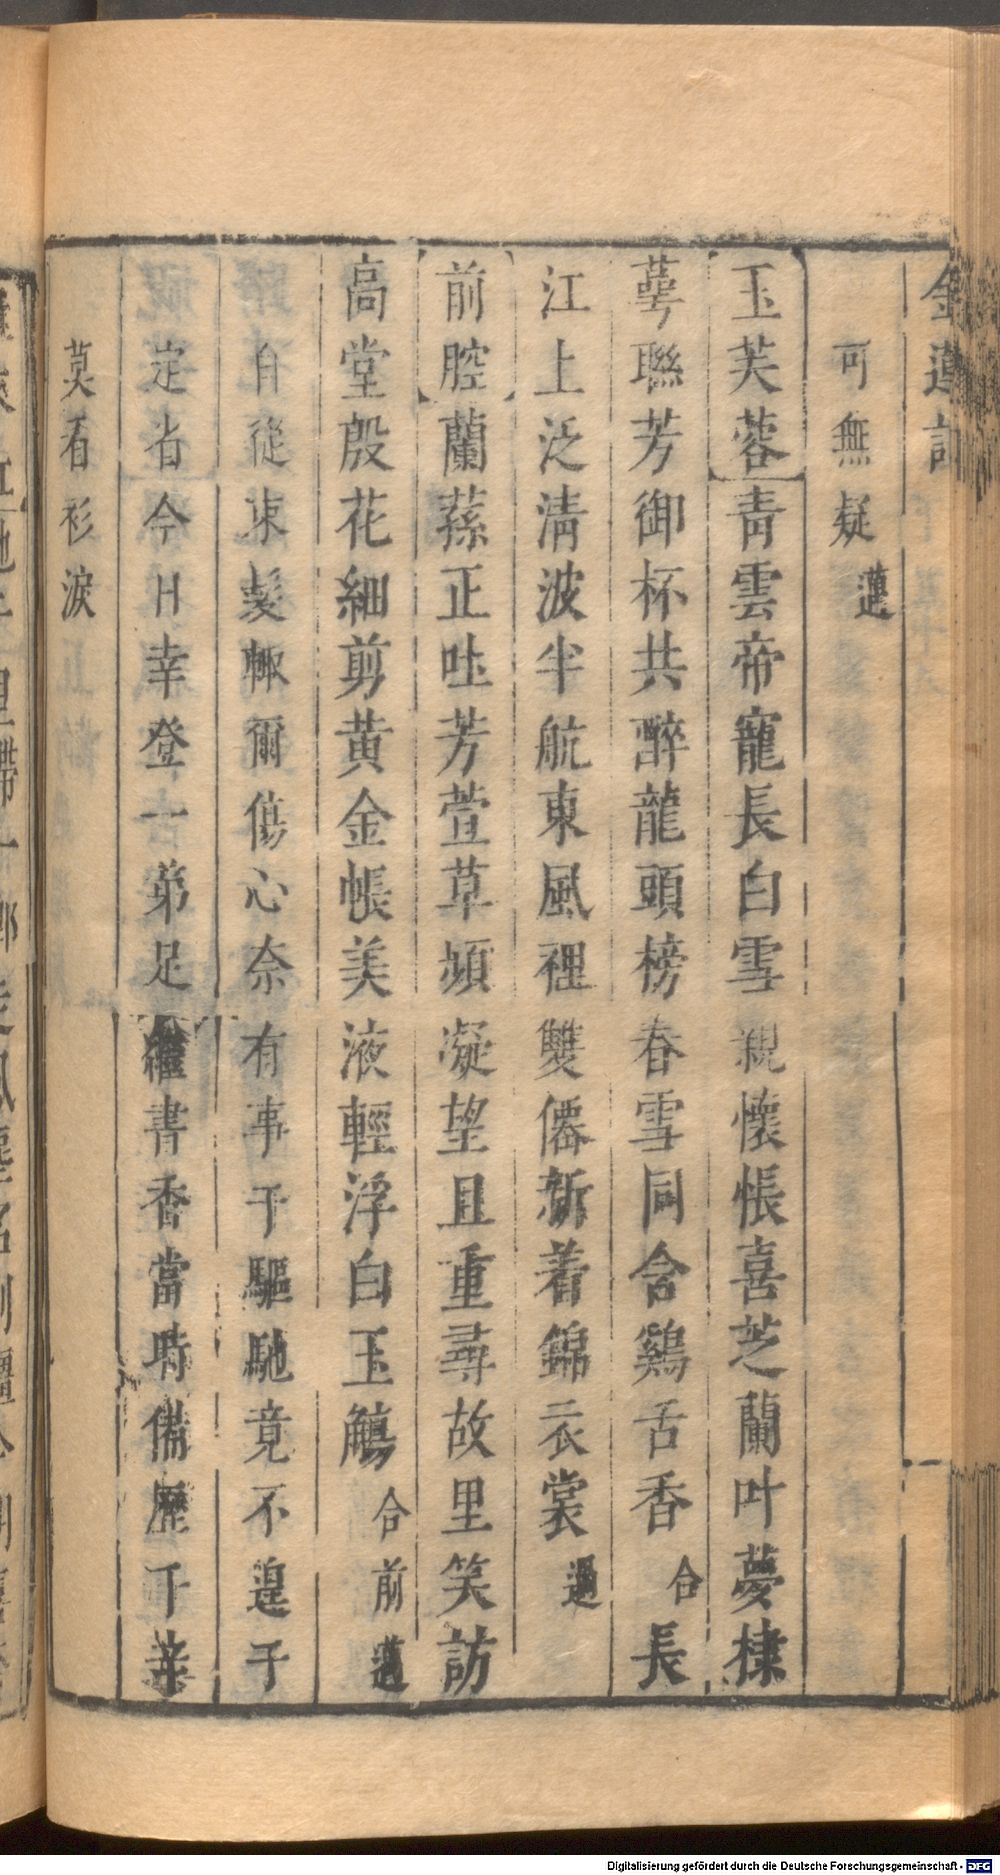 金蓮記
可無疑 邁
玉芙蓉青雲帝寵長白雪親懷悵喜芝蘭叶夢棣
萼聯芳御杯共醉龍頭榜春雪同含鷄舌香 合 長
江上泛清波半航東風裡雙僊新着錦衣裳
前腔蘭蓀正吐芳萱草頻凝望且重尋故里笑訪
高堂殷花細剪黄金帳美液輕浮白玉觴 合前
自從束髮輙爾傷心奈有事于驅馳竟不遑于
定省今日幸登一第足繼書香當時備歷千辛
莫看衫淚
Digitalisierung gefördert durch die Deutsche Forschungsgemeinschaft - DFG